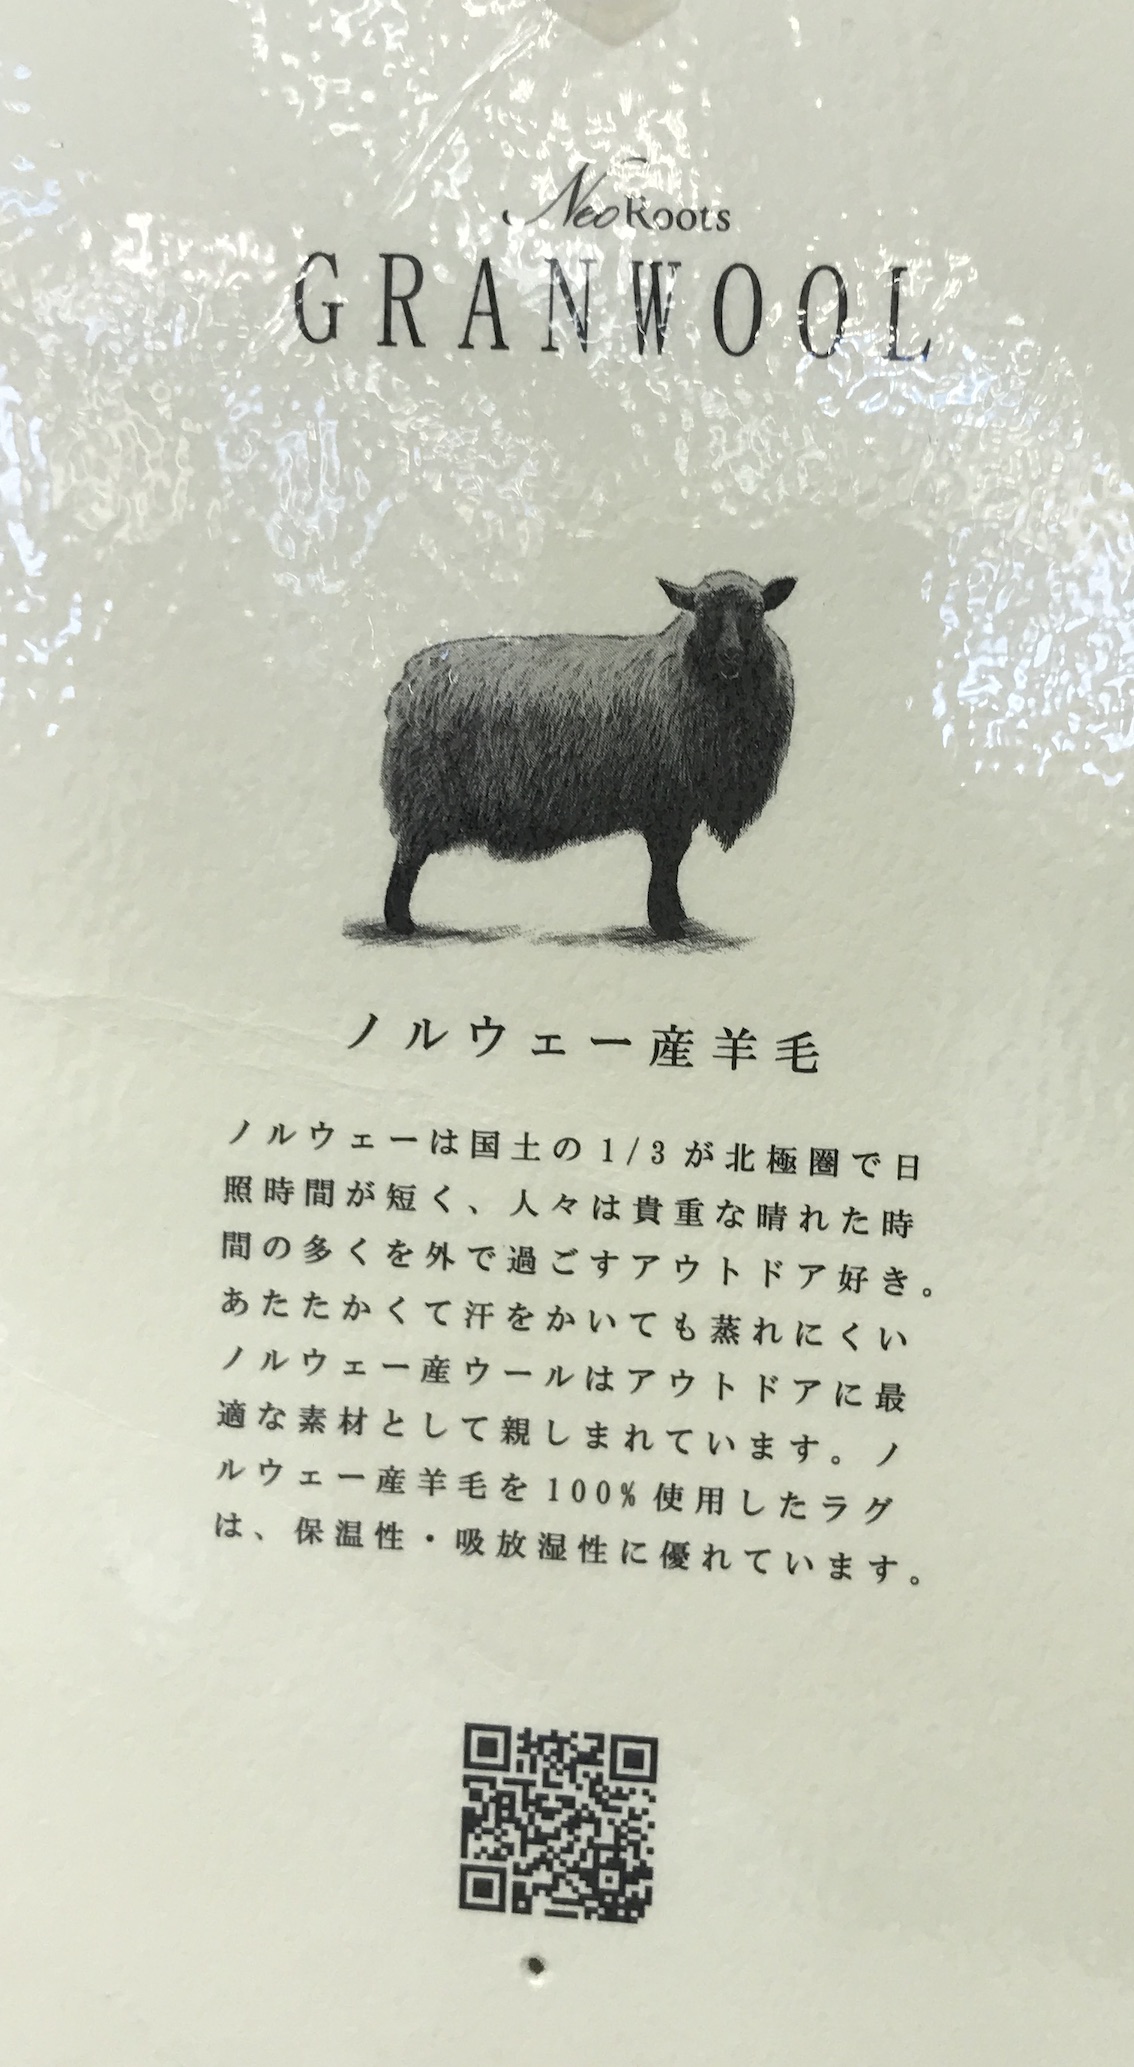 Neo Roots
GRANWOOL
ノルウェー産羊毛
ノルウェーは国土の1/3が北極圏で日
照時間が短く、人々は貴重な晴れた時
間の多くを外で過ごすアウトドア好き。
あたたかくて汗をかいても蒸れにくい
ノルウェー産ウールはアウトドアに最
適な素材として親しまれています。ノ
ルウェー産羊毛を100%使用したラグ
は、保温性・吸放湿性に優れています。